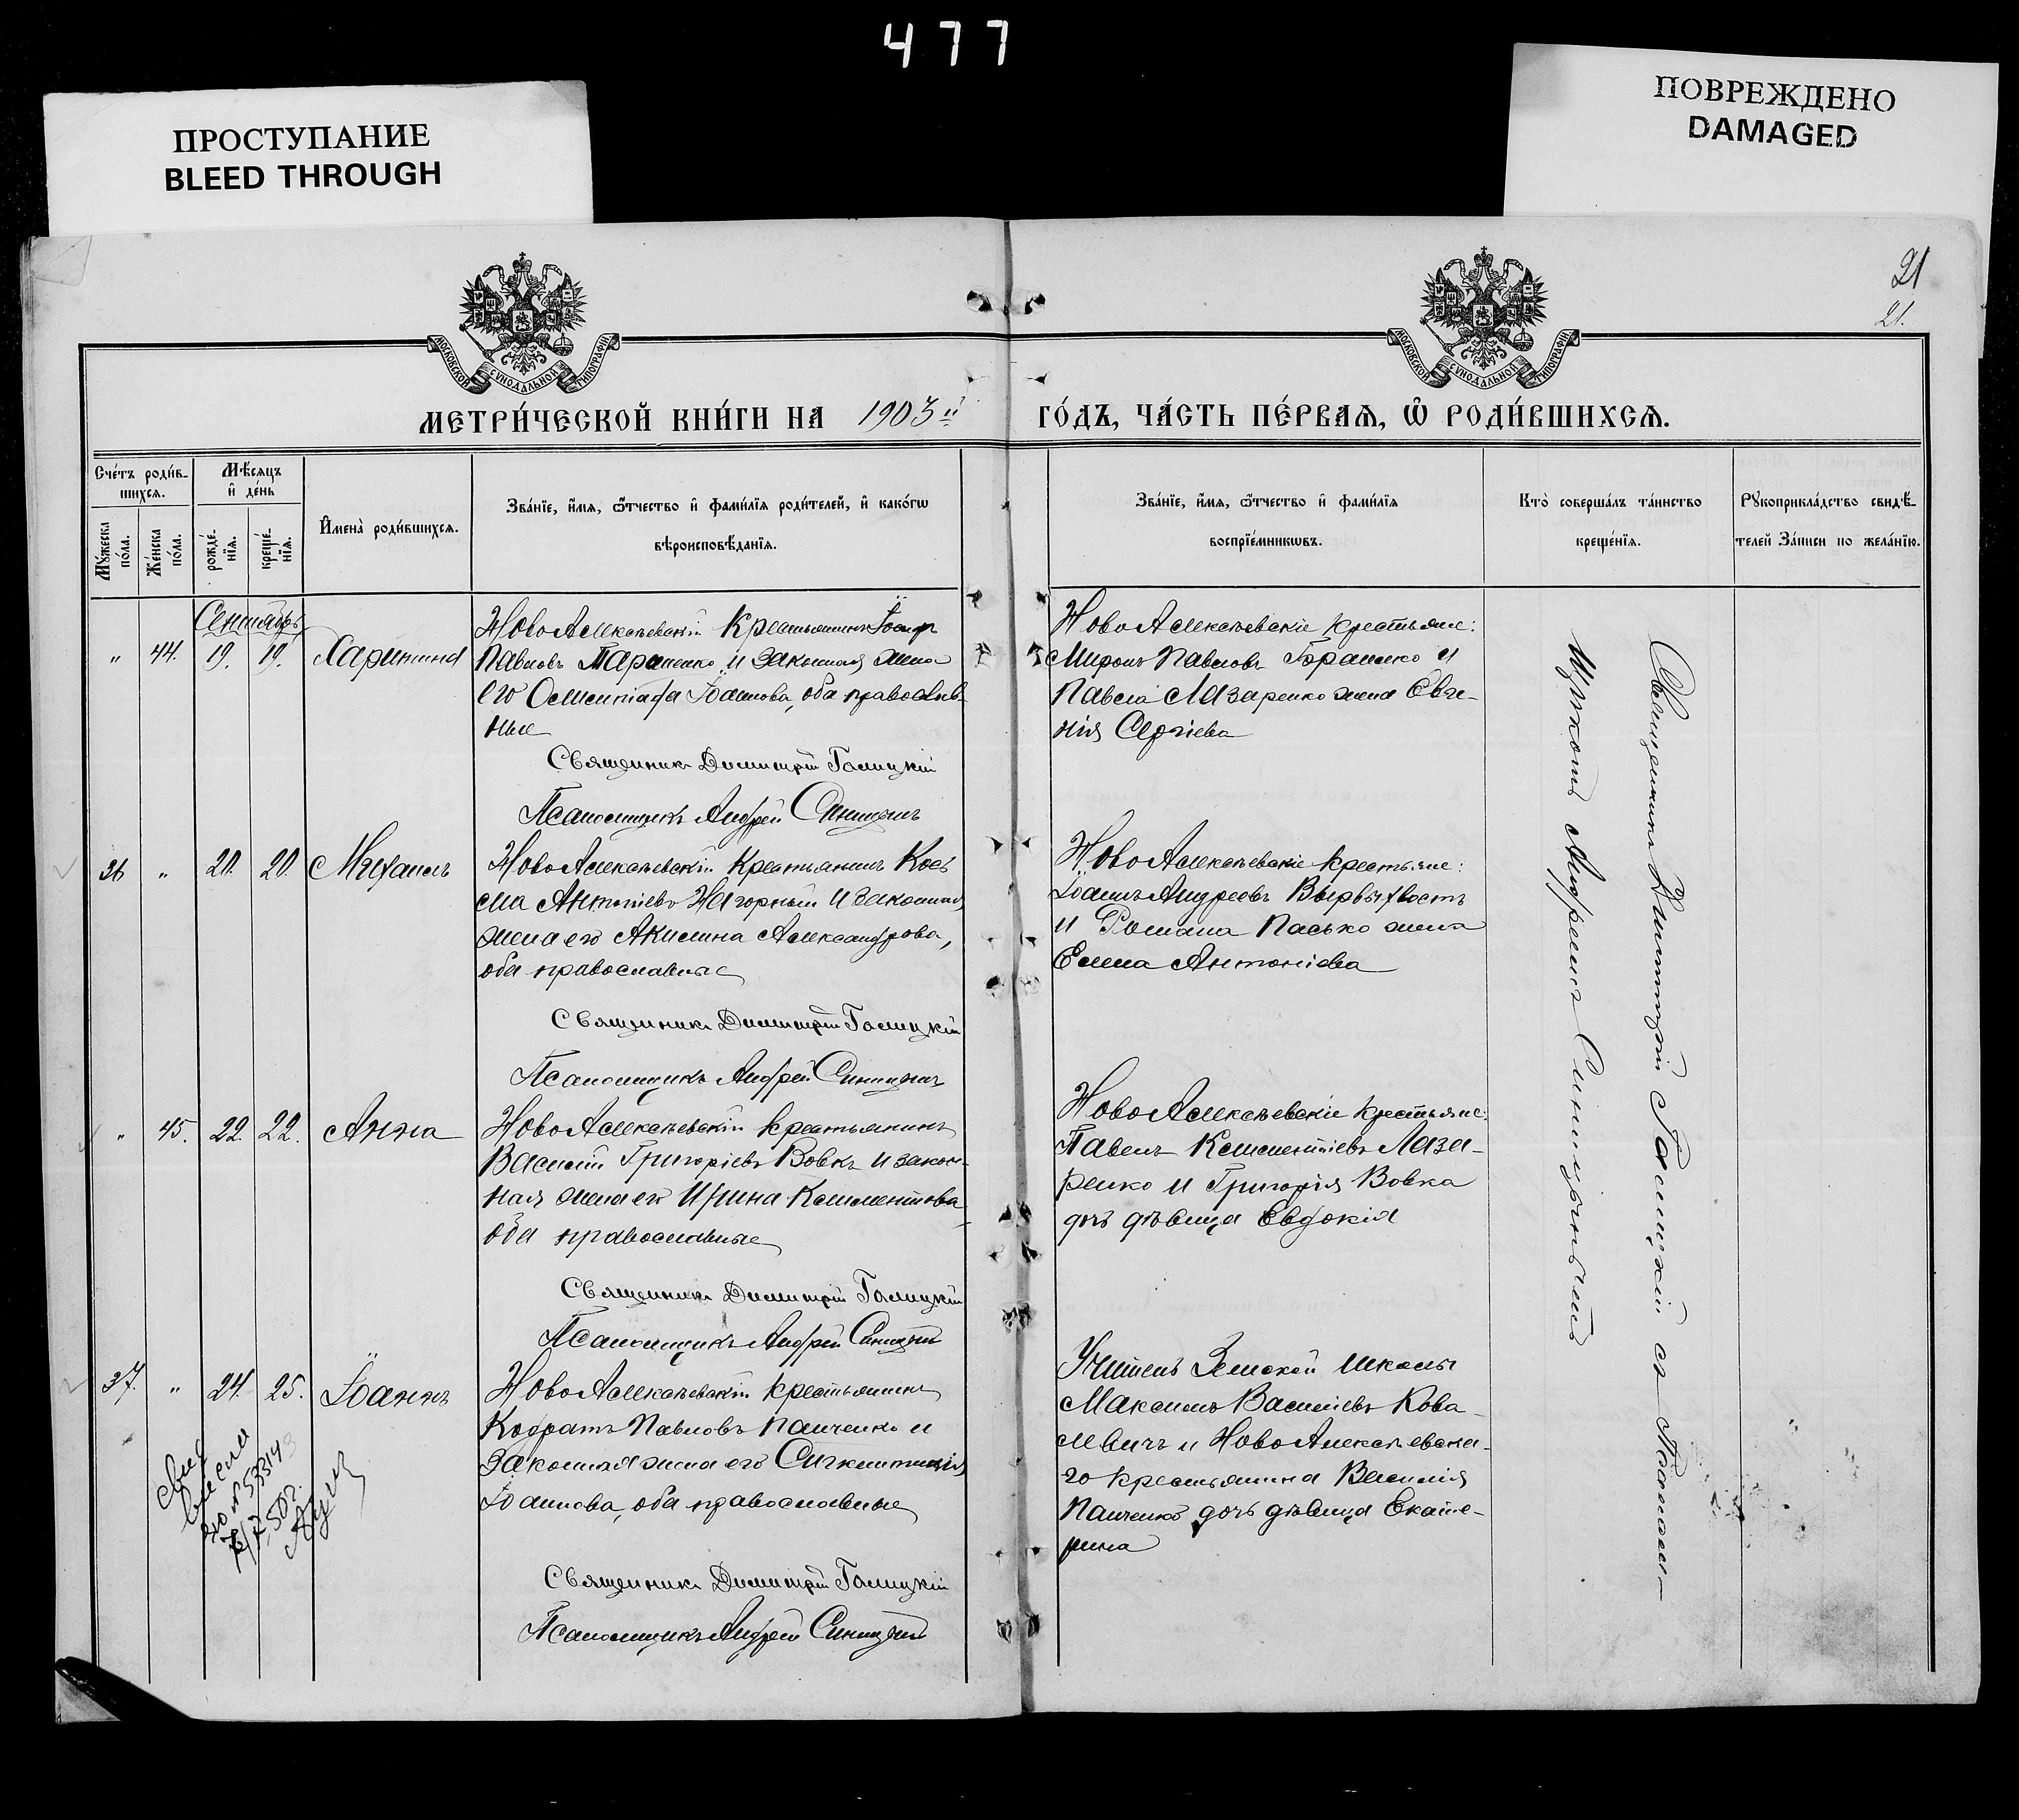 477
ПРОСТУПАНИЕ
BLEED THROUGH
ПОВРЕЖДЕНО
DAMAGED
21
21.
МОСКОВСКОЙ СѴНОДАЛЬНОЙ ТИПОГРАФІИ
МОСКОВСКОЙ СѴНОДАЛЬНОЙ ТИПОГРАФІИ
МЕТРИ́ЧЕСКОЙ КНИ́ГИ НА 1903й ГО́ДЪ, ЧА́СТЬ ПЕ́РВАѦ, Ѡ҆ РОДИ́ВШИХСѦ.
Сче́тъ роди́в-
шихсѧ.
Мѣ́сѧцъ
и҆ де́нь
Мꙋ́жеска
по́ла.
Же́нска
по́ла.
рожде́-
нїѧ.
креще́-
нїѧ.
И҆мена̀ роди́вшихсѧ.
Зва́нїе, и҆́мѧ, ѻ҆́тчество и҆ фами́лїѧ роди́телей, и҆ како́гѡ
вѣроисповѣ́данїѧ.
Зва́нїе, и҆́мѧ, ѻ҆́тчество и҆ фами́лїѧ
воспрїе́мникѡвъ.
Кто̀ соверша́лъ та́инство
креще́нїѧ.
Рꙋкоприкла́дство свидѣ́-
телей За́писи по жела́нїю.
Сентябрь
" 44. 19. 19. Харитина
НовоАлексѣевскій крестьянинъ Іосифъ
Павловъ Тараненко и законная жена
его Іоаннова, оба православ-
ные
Священникъ Димитрій Галицкій
Псаломщикъ Андрей Синицынъ
НовоАлексѣевскіе крестьяне:
Миронъ Павловъ и
Павла Лазаренко жена Евге-
нія Сергіева
36 " 20. 20. Михаилъ
НовоАлексѣевскій крестьянинъ Косъ
ма Антоніевъ Нагорный и законная
жена его Акилина Александрова,
оба православные
Священникъ Димитрій Галицкій
Псаломщикъ Андрей Синицынъ
НовоАлексѣевскіе крестьяне:
Іоаннъ Андреевъ Вырвыхвостъ
и Романа Пасько жена
Елена Антоніева
" 45. 22. 22. Анна
НовоАлексѣевскій крестьянинъ
Василій Григоріевъ Вовкъ и закон-
ная жена его Ирина Климентова
оба православные
Священникъ Димитрій Галицкій
Псаломщикъ Андрей Синицынъ
НовоАлексѣевскіе крестьяне:
Павелъ Климентіевъ Лаза-
ренко и Григорія Вовка
дочь дѣвица Евдокія
37. " 24. 25. Іоаннъ
НовоАлексѣевскій крестьянинъ
Кодратъ Павловъ Панченко и
законная жена его Синклитикія
Іоаннова, оба православные
Священникъ Димитрій Галицкій
Псаломщикъ Андрей Синицынъ
Учитель Земской школы
Максимъ Василіевъ Кова-
левичъ и НовоАлексѣевска-
го крестьянина Василія
Панченко дочь дѣвица Екате-
рина
Священникъ Димитрій Галицкій съ Псалом-
щикомъ Андреемъ Синицынымъ